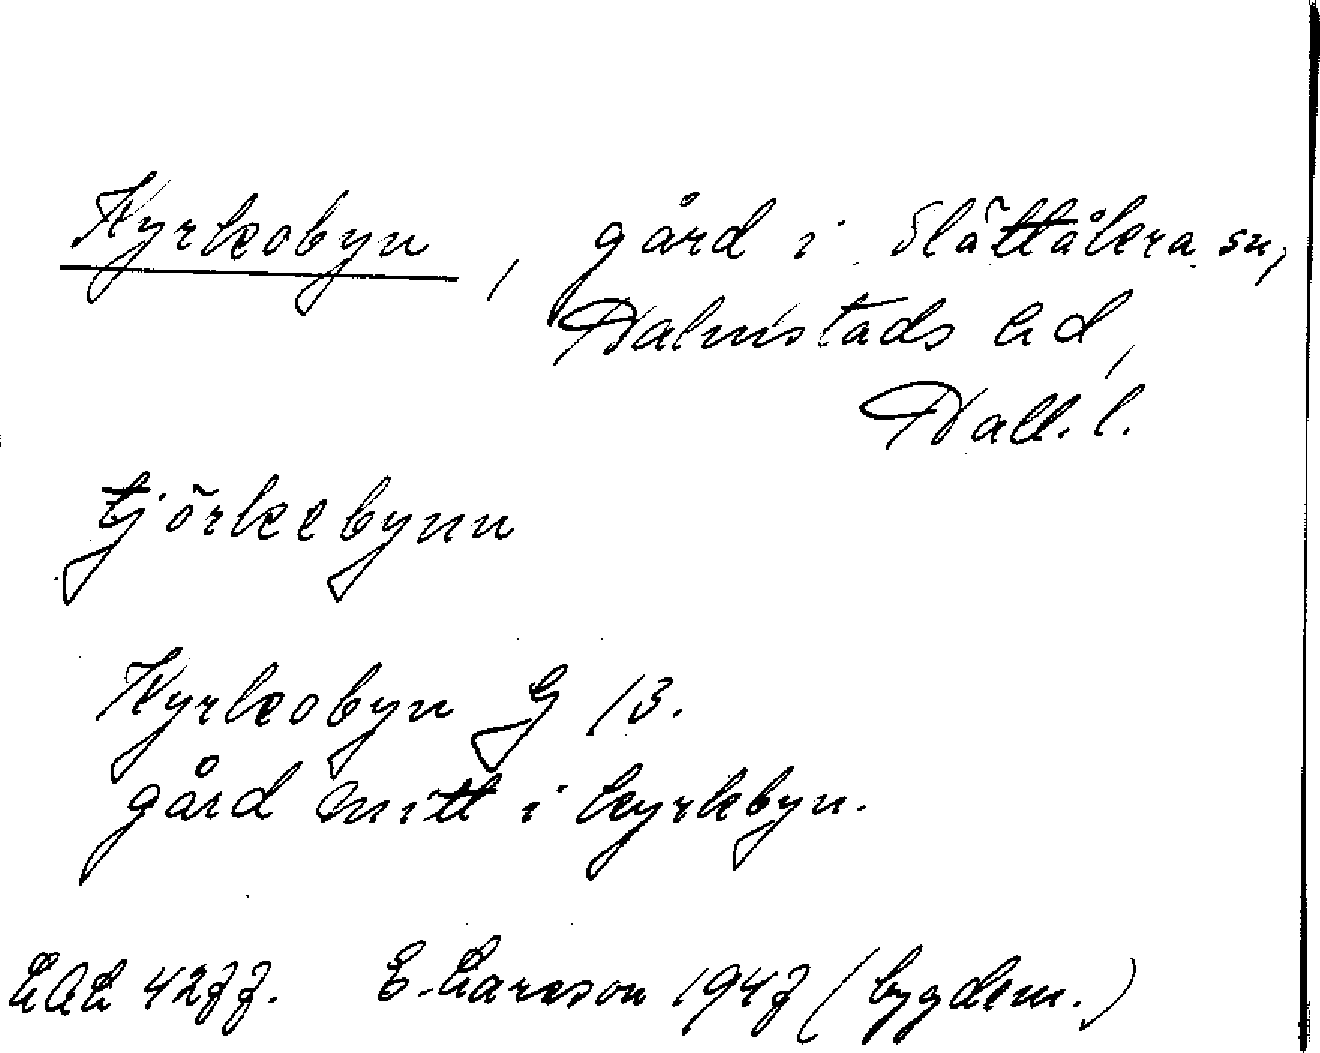 Kyrkobyn, gård i Slättåkra sn,
Halmstads hd,
Hall. l.
tjörkebynn
Kyrkobyn G 13.
gård mitt i kyrkbyn.
LAL 4277. E. Larsson 1947 (bygdem.)